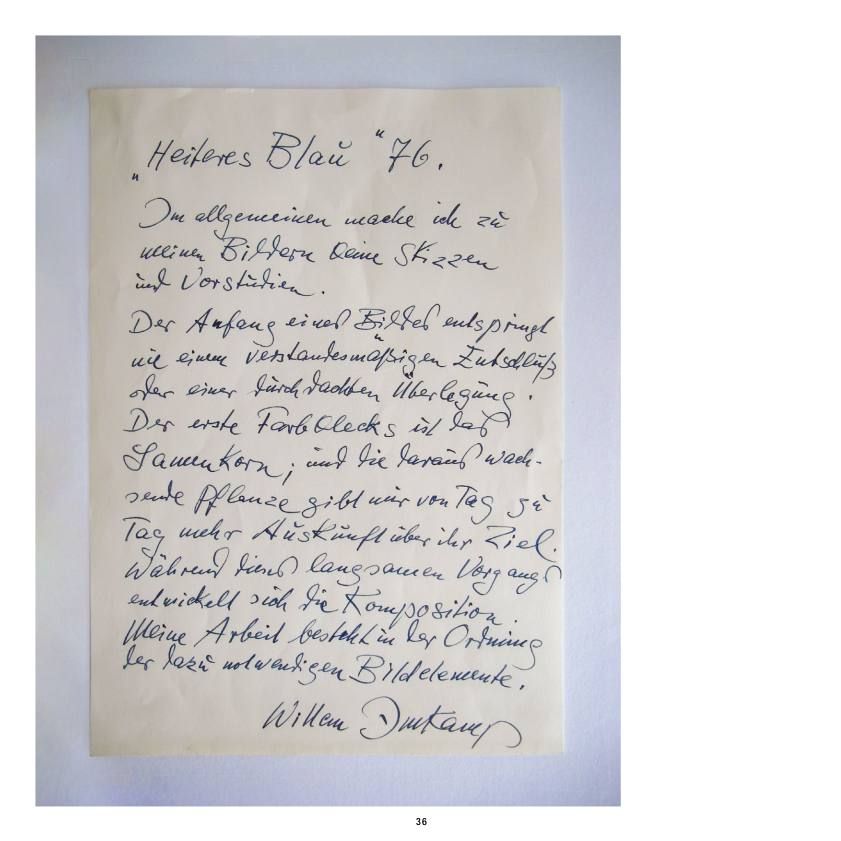 „Heiteres Blau" 76.
Im allgemeinen mache ich zu
meinen Bildern keine Skizzen
und Vorstudien.
Der Anfang eines Bildes entspringt
nie einem verstandesmäßigen Entschluß
oder einer durchdachten Überlegung.
Der erste Farbklecks ist das
Samenkorn; und die daraus wach-
sende Pflanze gibt mir von Tag zu
Tag mehr Auskunft über ihr Ziel.
Während dieses langsamen Vorgangs
entwickelt sich die Komposition.
Meine Arbeit besteht in der Ordnung
der dazu notwendigen Bildelemente.
Willem Imkamp
36